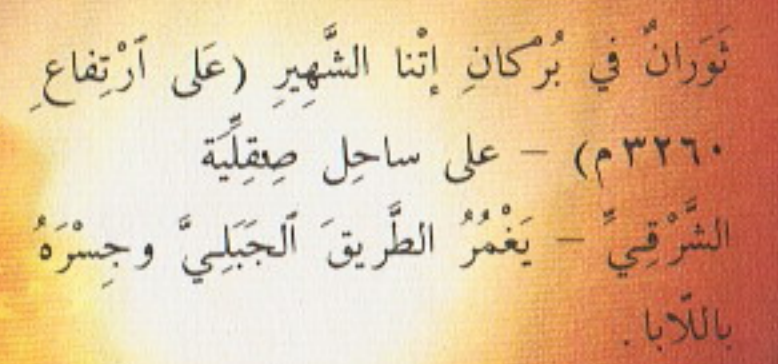 ثَوَرانٌ في بُرْكانِ إِتْنا الشَّهِيرِ (عَلى ٱرْتِفاعِ
٣٢٦٠م) – على ساحِل صِقِلِّيَة
الشَّرْقِيِّ – يَغْمُرُ الطَّريقَ ٱلجَبَلِيَّ وجِسْرَهُ
باللّابا.